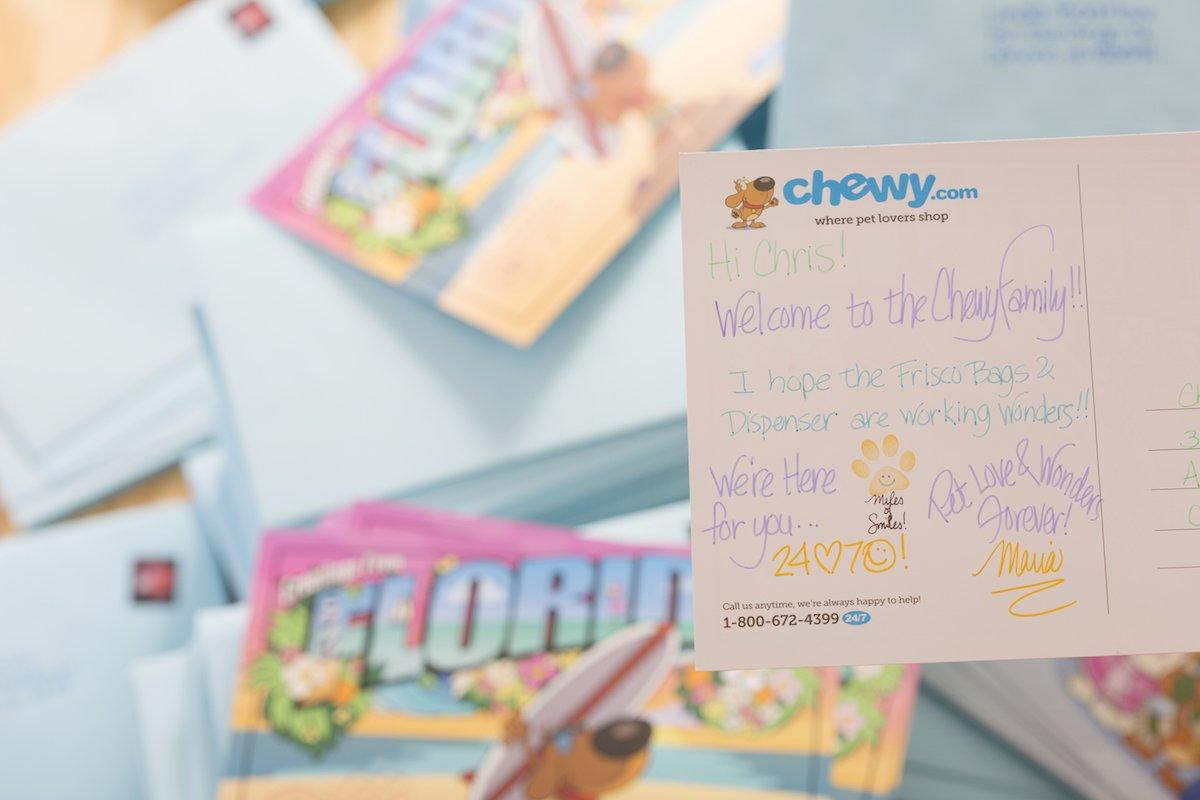 FLORI
chewy.com
where pet lovers shop
Hi Chris!
Welcome to the Chewy family!!
I hope the Frisco Bags &
Dispenser are working Wonders!!
We're Here
for you...
24♡7☺!
Miles
of
Smiles!
Pet Love & Wonders
Forever!
Maria
Call us anytime, we're always happy to help!
1-800-672-4399 24/7
Ch
3
A
C
Greetings From
FLORID